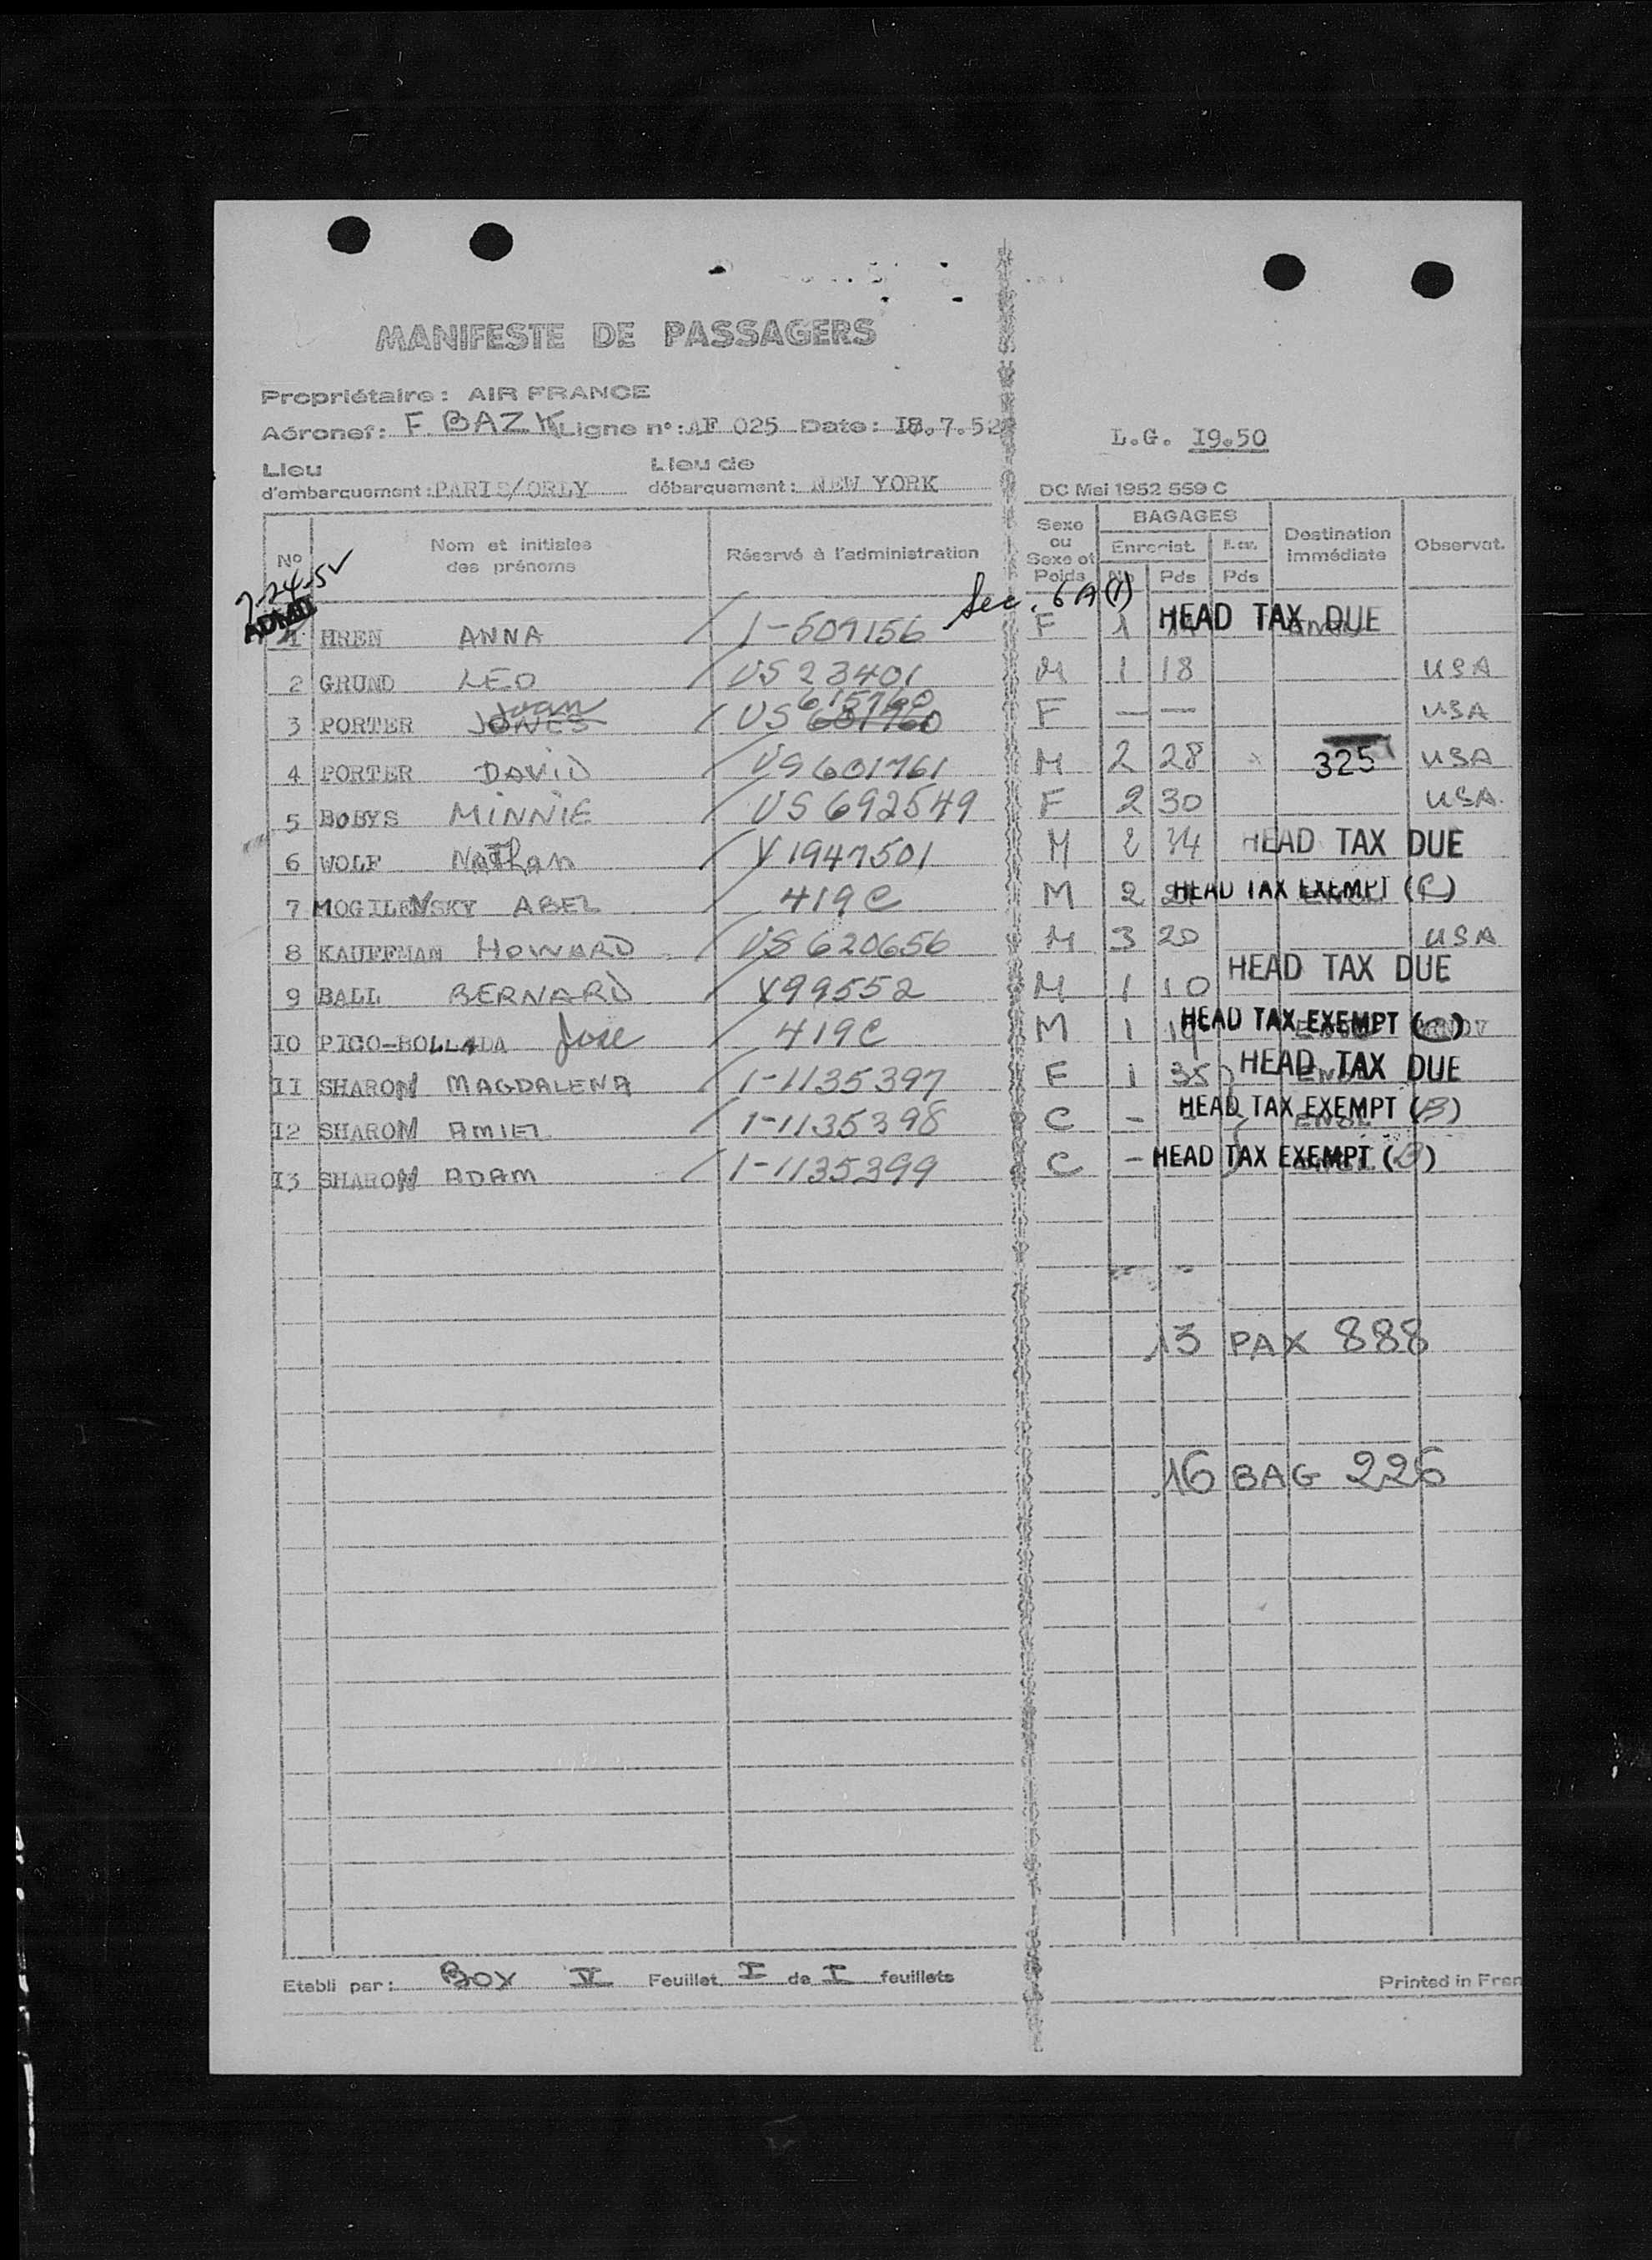 MANIFESTE DE PASSAGERS
Propriétaire : AIR FRANCE
Aéronef : F. BAZK Ligne n° : AF 025 Date : I8.7.52
L.G. I9.50
Lieu d'embarquement : PARIS/ORLY Lieu de débarquement : NEW YORK
DC Mai 1952 559 C
N° Nom et initiales des prénoms Réservé à l'administration Sexe ou Sexe et Poids BAGAGES Enregist. No Pds Pds Destination immédiate Observat.
7-24-52
Sec. 6 A (1)
1 HREN ANNA / 1-509156 F 1 HEAD TAX DUE
2 GRUND LEO / US 23401 M 1 18 USA
Joan 615760
3 PORTER JONES / US 601760 F — — USA
4 PORTER DAVID / US 601761 M 2 28 325 USA
5 BOBYS MINNIE / US 692549 F 2 30 USA
6 WOLF Nathan / V 1947501 M 2 34 HEAD TAX DUE
7 MOGILENSKY ABEL / 419 C M 2 HEAD TAX EXEMPT (C)
8 KAUFFMAN HOWARD / US 620656 M 3 20 USA
9 BALL BERNARD / V99552 M 1 10 HEAD TAX DUE
I0 PICO-BOLLADA Jose / 419 C M 1 HEAD TAX EXEMPT (C)
II SHARON MAGDALENA / 1-1135397 F 1 35 HEAD TAX DUE
I2 SHARON / 1-1135398 C - HEAD TAX EXEMPT (B)
I3 SHARON ADAM / 1-1135399 C - HEAD TAX EXEMPT (B)
13 PAX 888
16 BAG 226
Etabli par : BOX V Feuillet I de I feuillets
Printed in Fran